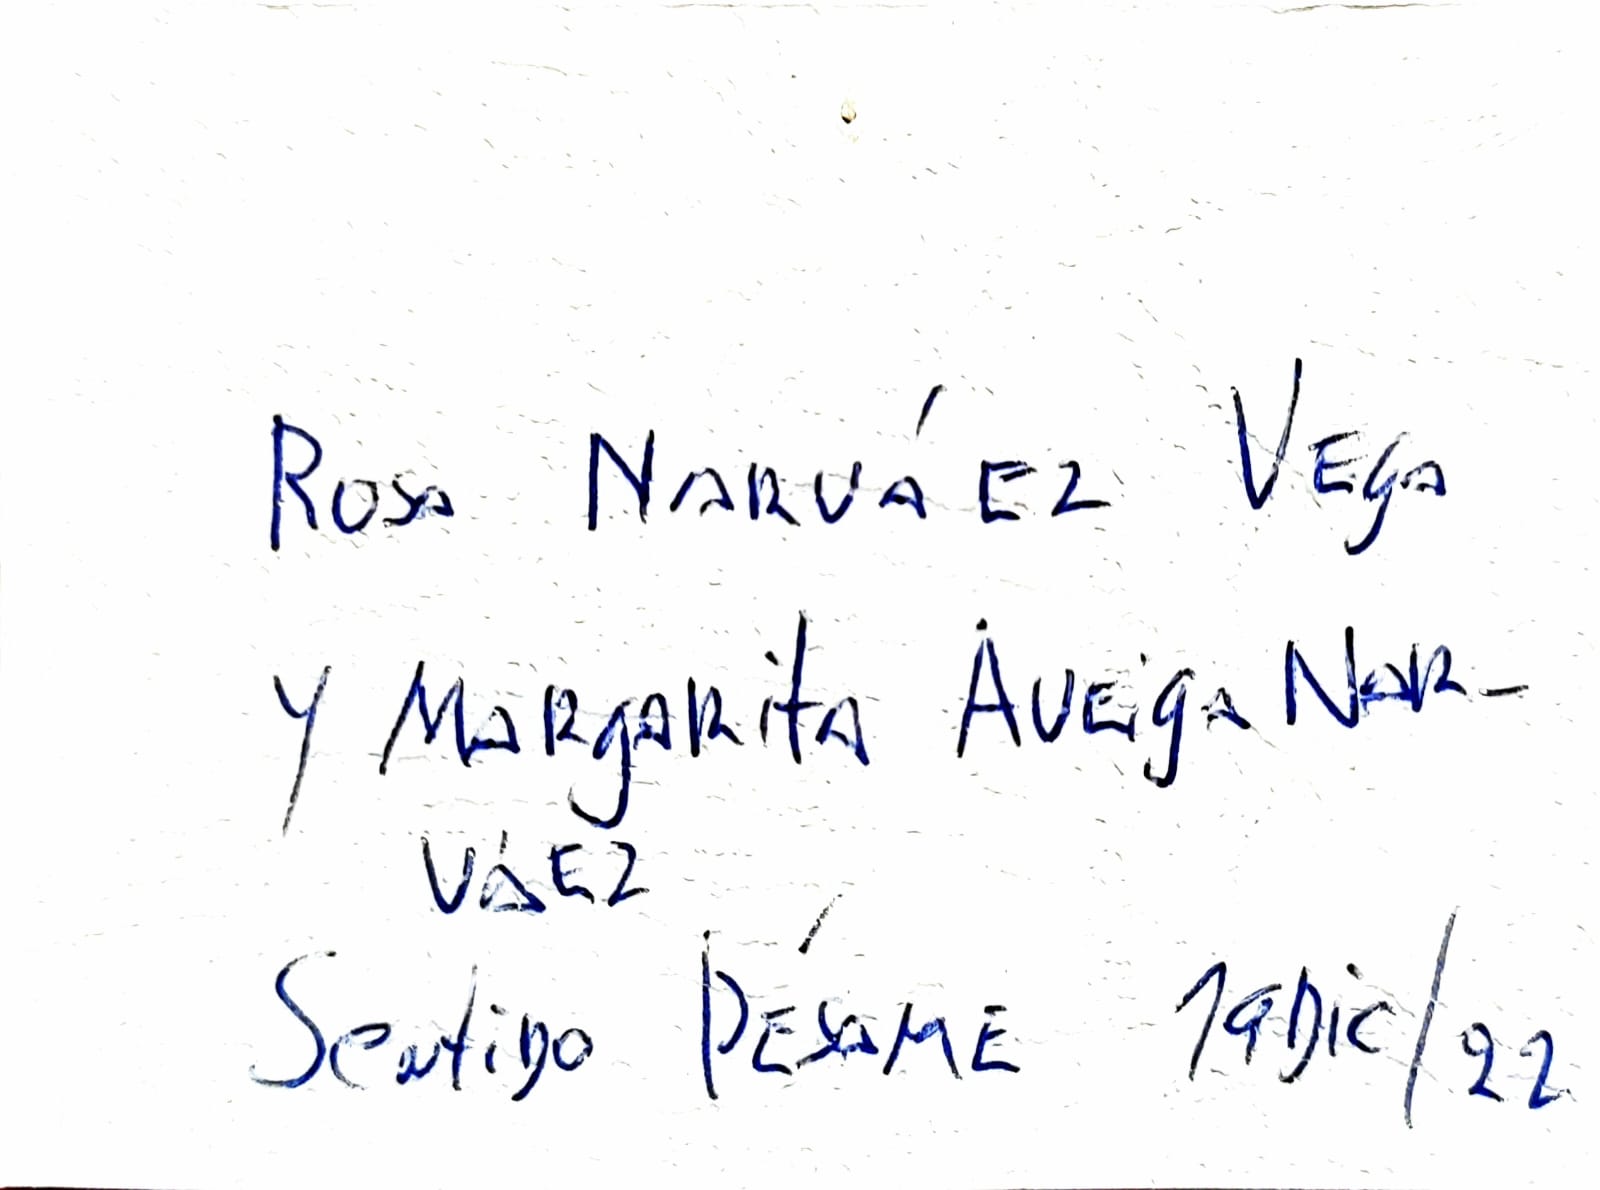 Rosa Narváez Vega
y Margarita Aveiga Nar-
váez
Sentido Pésame 19 Dic/22